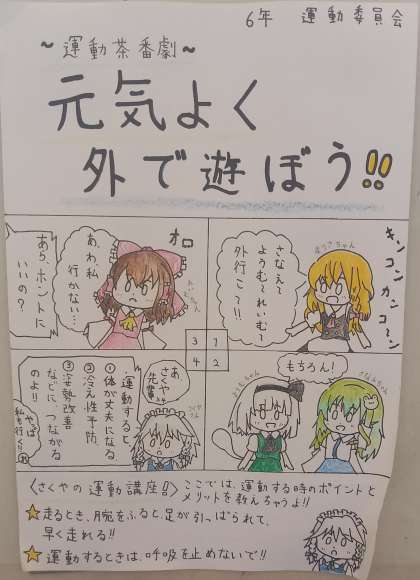 6年 運動委員会
~運動茶番劇~
元気よく
外で遊ぼう!!
キンコンカンコーン
まりさちゃん
さなえて
ようむてれいむて
外行こて!!
1
2
3
4
もちろん!
さなえちゃん
ようむちゃん
オロ
あ、わ私
行かない…
あら、ホントに
いいの?
あ
さくや
先輩、
運動すると、
①体が丈夫になる
②冷え性予防
③姿勢改善
などにつながる
のよ!!
やっぱ
私も行く!!
<さくやの運動講座!!>ここでは、運動する時のポイントと
メリットを教えちゃうよ!!
☆走るとき、腕をふると足が引っぱられて、
早く走れる!!
☆運動するときは、呼吸を止めないで!!